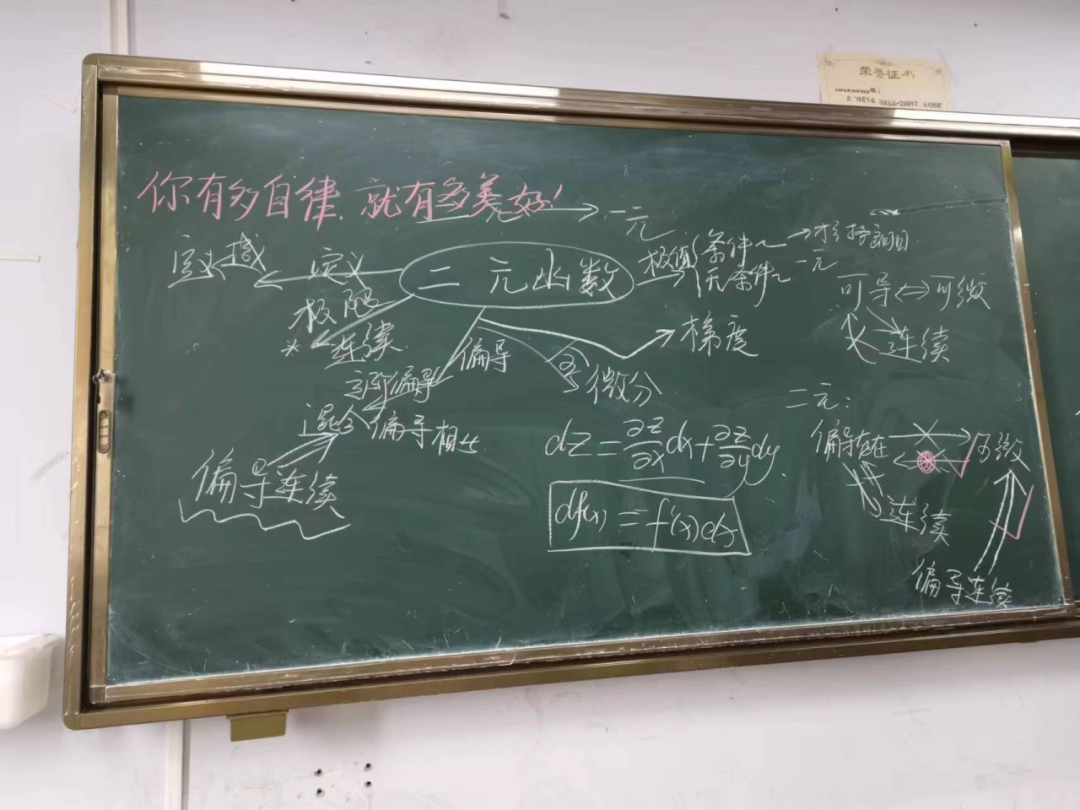 荣誉证书
你有多自律,就有多美好!
一元
二元函数
定义
定义域
极限
连续
偏导
高阶偏导
混合偏导相等
偏导连续
全微分
梯度
极值
条件~
无条件~
一元
dz = ∂z/∂x dx + ∂z/∂y dy
df(x) = f'(x)dx
可导⇔可微
连续
二元:
偏导存在
可微
连续
偏导连续